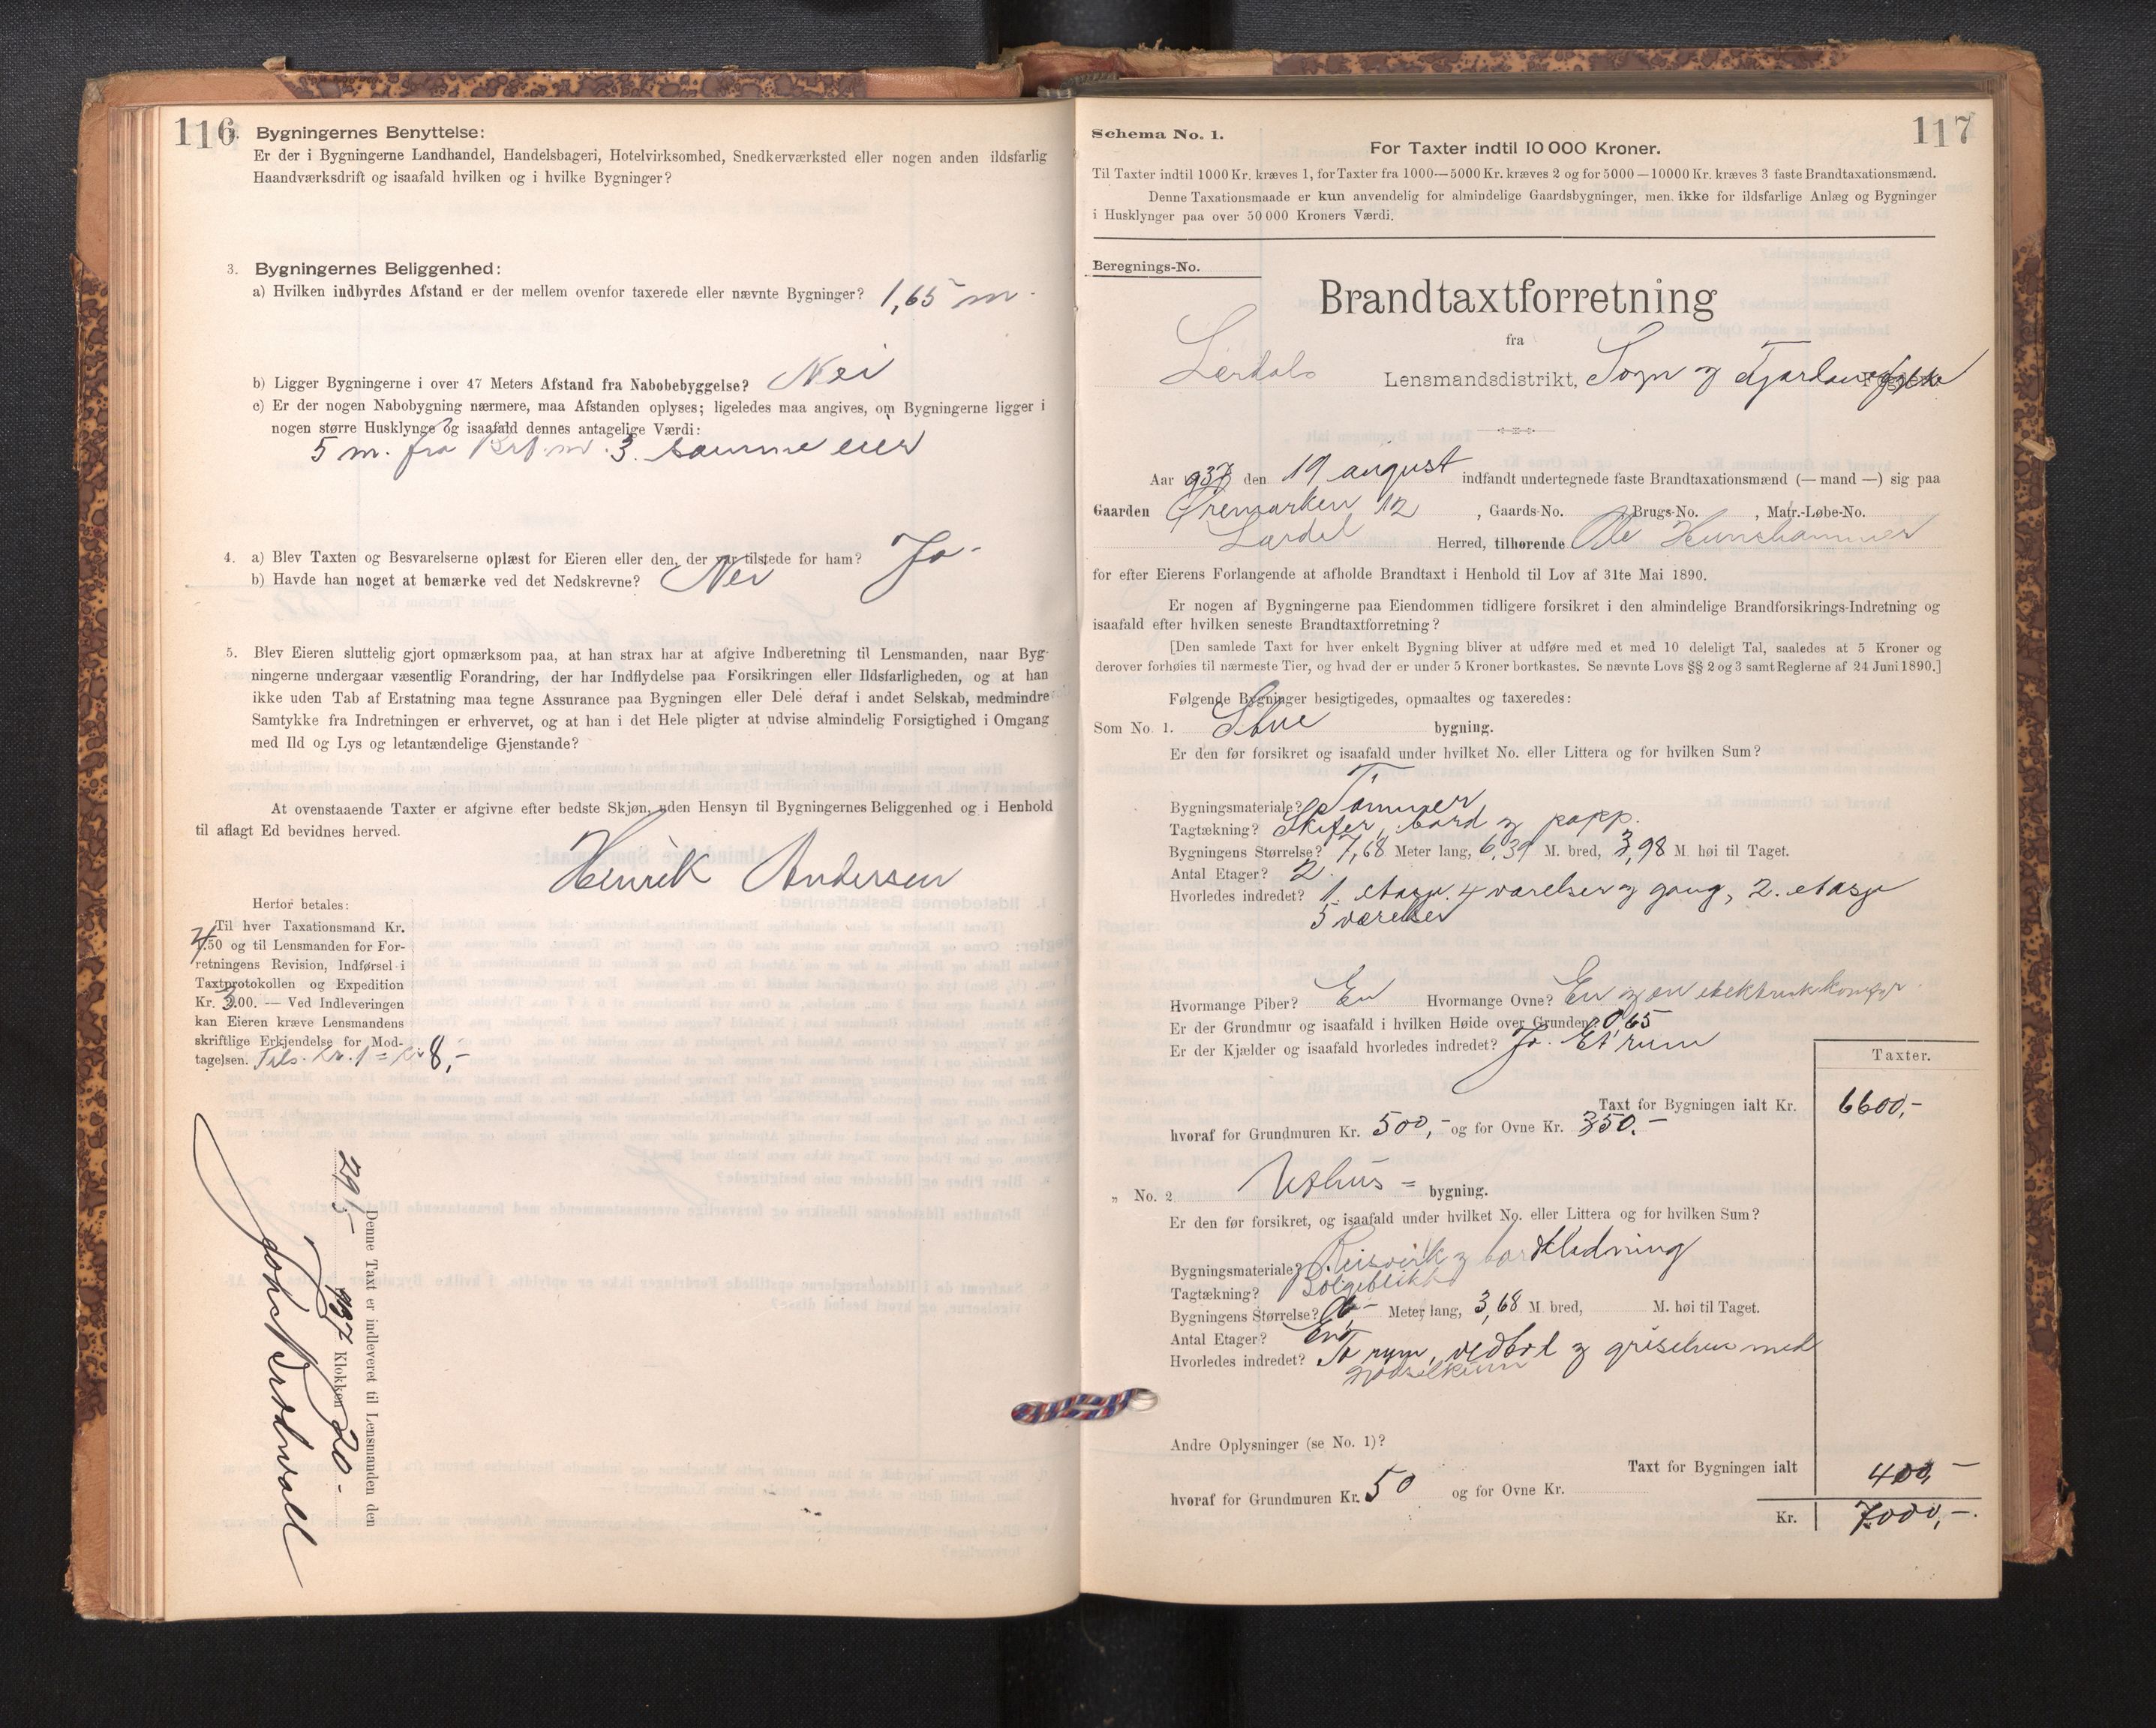 116
2. Bygningernes Benyttelse:
Er der i Bygningerne Landhandel, Handelsbageri, Hotelvirksomhed, Snedkerværksted eller nogen anden ildsfarlig
Haandværksdrift og isaafald hvilken og i hvilke Bygninger?
3. Bygningernes Beliggenhed:
a) Hvilken indbyrdes Afstand er der mellem ovenfor taxerede eller nævnte Bygninger? 1,65 m.
b) Ligger Bygningerne i over 47 Meters Afstand fra Nabobebyggelse? Nei
c) Er der nogen Nabobygning nærmere, maa Afstanden oplyses; ligeledes maa angives, om Bygningerne ligger i
nogen større Husklynge og isaafald dennes antagelige Værdi:
5 m. fra Br.f. nr. 3. samme eier
4. a) Blev Taxten og Besvarelserne oplæst for Eieren eller den, der var tilstede for ham? Ja
b) Havde han noget at bemærke ved det Nedskrevne? Nei
5. Blev Eieren sluttelig gjort opmærksom paa, at han strax har at afgive Indberetning til Lensmanden, naar Byg-
ningerne undergaar væsentlig Forandring, der har Indflydelse paa Forsikringen eller Ildsfarligheden, og at han
ikke uden Tab af Erstatning maa tegne Assurance paa Bygningen eller Dele deraf i andet Selskab, medmindre
Samtykke fra Indretningen er erhvervet, og at han i det Hele pligter at udvise almindelig Forsigtighed i Omgang
med Ild og Lys og letantændelige Gjenstande?
At ovenstaaende Taxter er afgivne efter bedste Skjøn, uden Hensyn til Bygningernes Beliggenhed og i Henhold
til aflagt Ed bevidnes herved.
Henrik Andersen
Herfor betales:
Til hver Taxationsmand Kr.
4.50 og til Lensmanden for For-
retningens Revision, Indførsel i
Taxtprotokollen og Expedition
Kr. 3.00. — Ved Indleveringen
kan Eieren kræve Lensmandens
skriftlige Erkjendelse for Mod-
tagelsen. Tils. kr. 1 = kr 8,-
Denne Taxt er indleveret til Lensmanden den
29/5- 1937 Klokken 20-
117
Schema No. 1.
For Taxter indtil 10 000 Kroner.
Til Taxter indtil 1000 Kr. kræves 1, for Taxter fra 1000—5000 Kr. kræves 2 og for 5000—10000 Kr. kræves 3 faste Brandtaxationsmænd.
Denne Taxationsmaade er kun anvendelig for almindelige Gaardsbygninger, men ikke for ildsfarlige Anlæg og Bygninger
i Husklynger paa over 50 000 Kroners Værdi.
Beregnings-No.
Brandtaxtforretning
fra
Lærdals Lensmandsdistrikt, Sogn og Fjordane fylke
Aar 937 den 19 august indfandt undertegnede faste Brandtaxationsmænd (— mand —) sig paa
Gaarden Øremarken 12, Gaards-No. , Brugs-No. , Matr.-Løbe-No.
Lærdal Herred, tilhørende Ole Hunshammer
for efter Eierens Forlangende at afholde Brandtaxt i Henhold til Lov af 31te Mai 1890.
Er nogen af Bygningerne paa Eiendommen tidligere forsikret i den almindelige Brandforsikrings-Indretning og
isaafald efter hvilken seneste Brandtaxtforretning?
[Den samlede Taxt for hver enkelt Bygning bliver at udføre med et med 10 deleligt Tal, saaledes at 5 Kroner og
derover forhøies til nærmeste Tier, og hvad der er under 5 Kroner bortkastes. Se nævnte Lovs §§ 2 og 3 samt Reglerne af 24 Juni 1890.]
Følgende Bygninger besigtigedes, opmaaltes og taxeredes:
Som No. 1. Stue bygning.
Er den før forsikret og isaafald under hvilket No. eller Littera og for hvilken Sum?
Bygningsmateriale? Tømmer
Tagtækning? Skifer, bord og papp.
Bygningens Størrelse? 7,68 Meter lang, 6,39 M. bred, 3,98 M. høi til Taget.
Antal Etager? 2.
Hvorledes indredet? 1. etasje 4 værelser og gang, 2. etasje
5 værelser
Hvormange Piber? En Hvormange Ovne? En og en elektrisk komfyr.
Er der Grundmur og isaafald i hvilken Høide over Grunden? 0,65
Er der Kjælder og isaafald hvorledes indredet? Ja. Et rum
Taxter.
Taxt for Bygningen ialt Kr. 6600,-
hvoraf for Grundmuren Kr. 500,- og for Ovne Kr. 350.-
„ No. 2 Uthus = bygning.
Er den før forsikret, og isaafald under hvilket No. eller Littera og for hvilken Sum?
Bygningsmateriale? Reisverk og bordkledning
Tagtækning? Bølgeblikk
Bygningens Størrelse? Meter lang, 3,68 M. bred, M. høi til Taget.
Antal Etager? En
Hvorledes indredet? To rum, vedbod og grisehus med
gjødselkum
Andre Oplysninger (se No. 1)?
Taxt for Bygningen ialt 400,-
hvoraf for Grundmuren Kr. 50 og for Ovne Kr.
Kr. 7000,-.